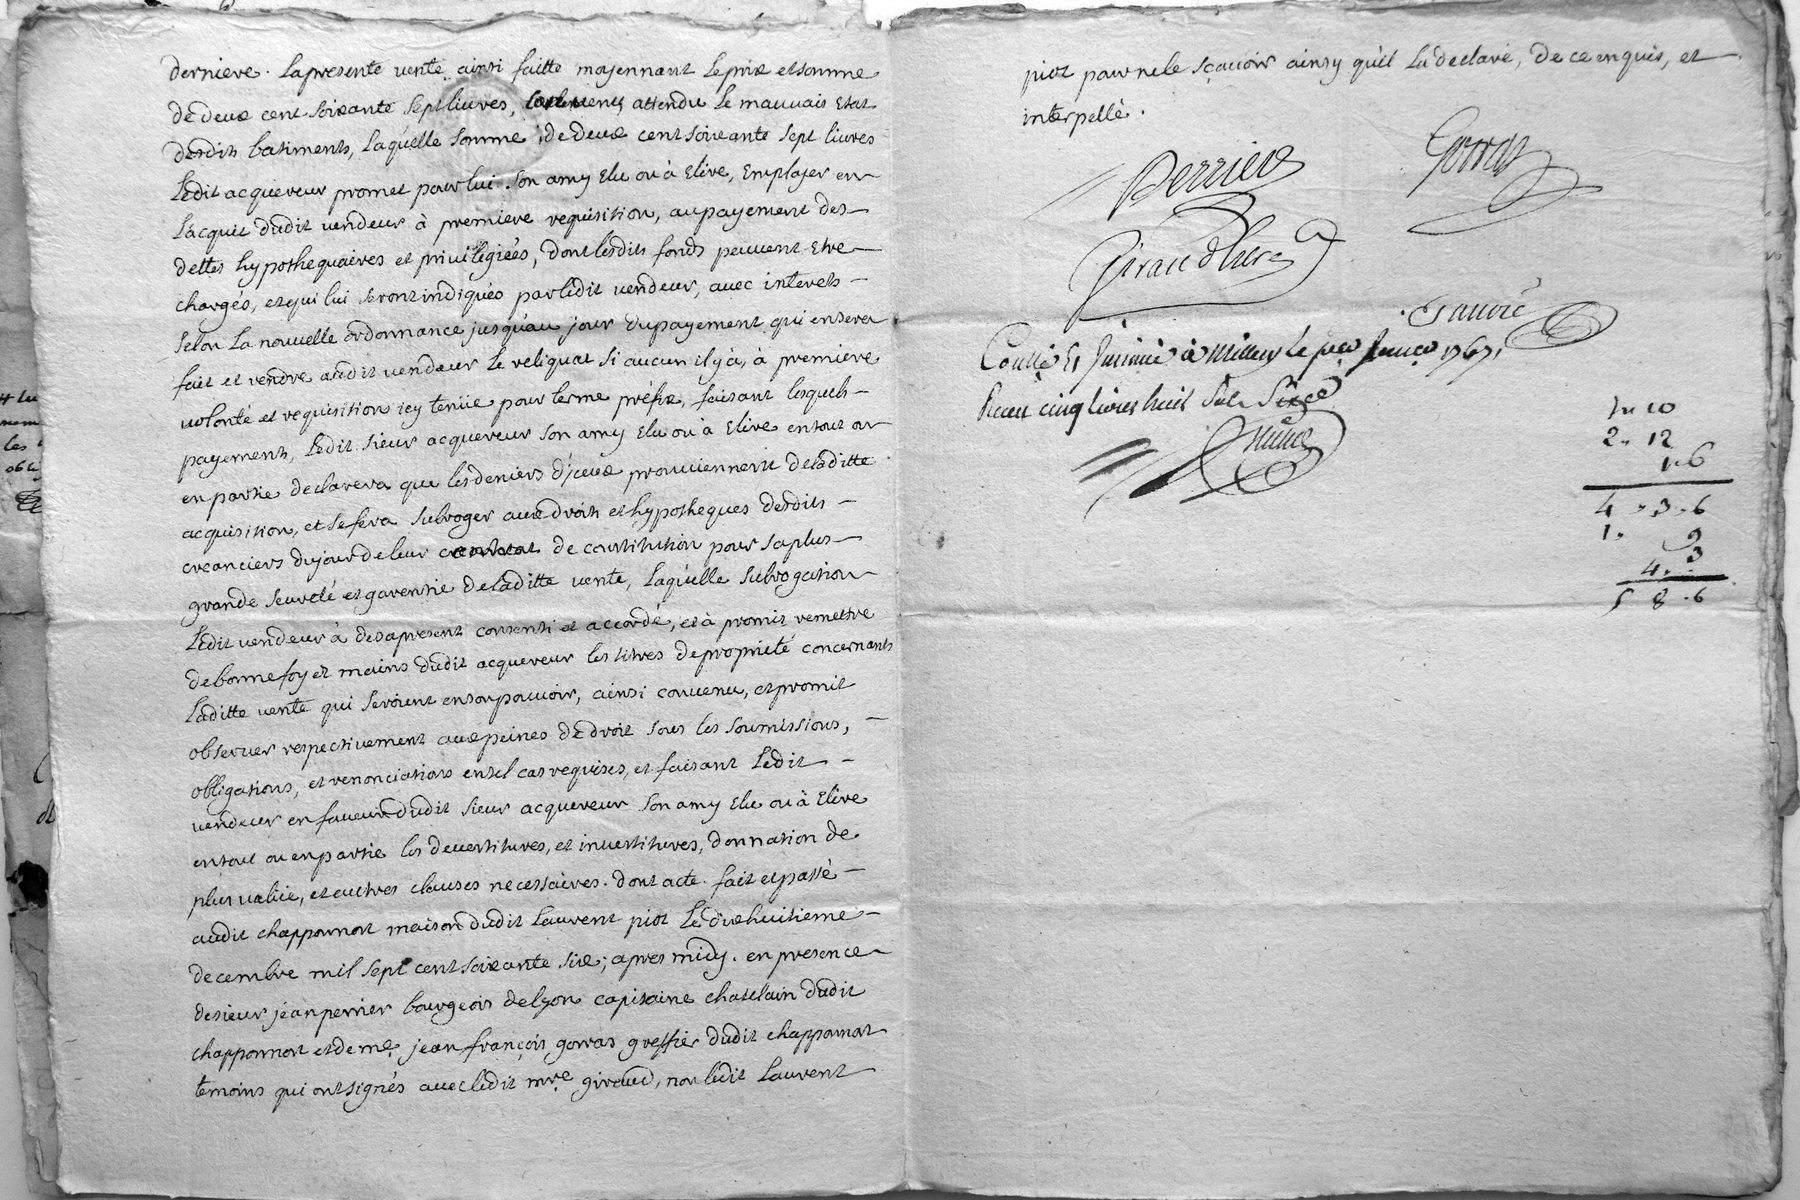 derniere. la presente vente ainsi faitte moyennant le prix et somme
de deux cent soixante sept livres, attendu le mauvais etat
desdits batiments, laquelle somme de deux cent soixante sept livres
ledit acquereur promet pour lui son amy elu ou à elire, employer en
l'acquit dudit vendeur à premiere requisition, au payement des
dettes hypothequaires et privilegiées, dont lesdits fonds peuvent etre
chargés, et qui lui seront indiqués par ledit vendeur, avec interets
selon la nouvelle ordonnance jusqu'au jour du payement qui en sera
fait et rendre audit vendeur le reliquat si aucun il y a, à premiere
volonté et requisition icy tenüe pour terme préfix, faisant lesquels
payements, ledit sieur acquereur son amy elu ou à elire en tout ou
en partie declarera que les deniers d'yceux proviennent de laditte
acquisition, et se fera subroger aux droits et hypotheques desdits
creanciers du jour de leur contrat de constitution pour sa plus
grande seureté et garentie de laditte vente, laquelle subrogation
ledit vendeur à des apresent consenti et accordé, et à promit remettre
de bonne foy et mains dudit acquereur les titres de proprieté concernants
laditte vente qui seroient en son pouvoir, ainsi convenu, et promit
observer respectivement aux peines de droit sous les soumissions,
obligations, et renonciations en tel cas requises, et faisant ledit
vendeur en faveur dudit sieur acquereur son amy elu ou à elire
en tout ou en partie les devestitures, et investitures, donnation de
plus valüe, et autres clauses necessaires. dont acte. fait et passé
audit chapponnost maison dudit laurent piot le dixhuitieme
decembre mil sept cent soixante six; apres midy. en presence
de sieur jean perrier bourgeois de lyon capitaine chatelain dudit
chapponnost et de me. jean françois gorras greffier dudit chapponnost
temoins qui ont signés avec ledit mre giraud, non ledit laurent
piot pour ne le sçavoir ainsy qu'il l'a declaré, de ce enquis, et
interpellé.
Perrier
Gorras
Giraud
Conllé Et Insinué à Millery le 1767
Receu cinq livres huit Sols Six
1 " 10
2 " 12
1 . 6
4 " 3 . 6
1 . 9
4 . 3
5 8 . 6